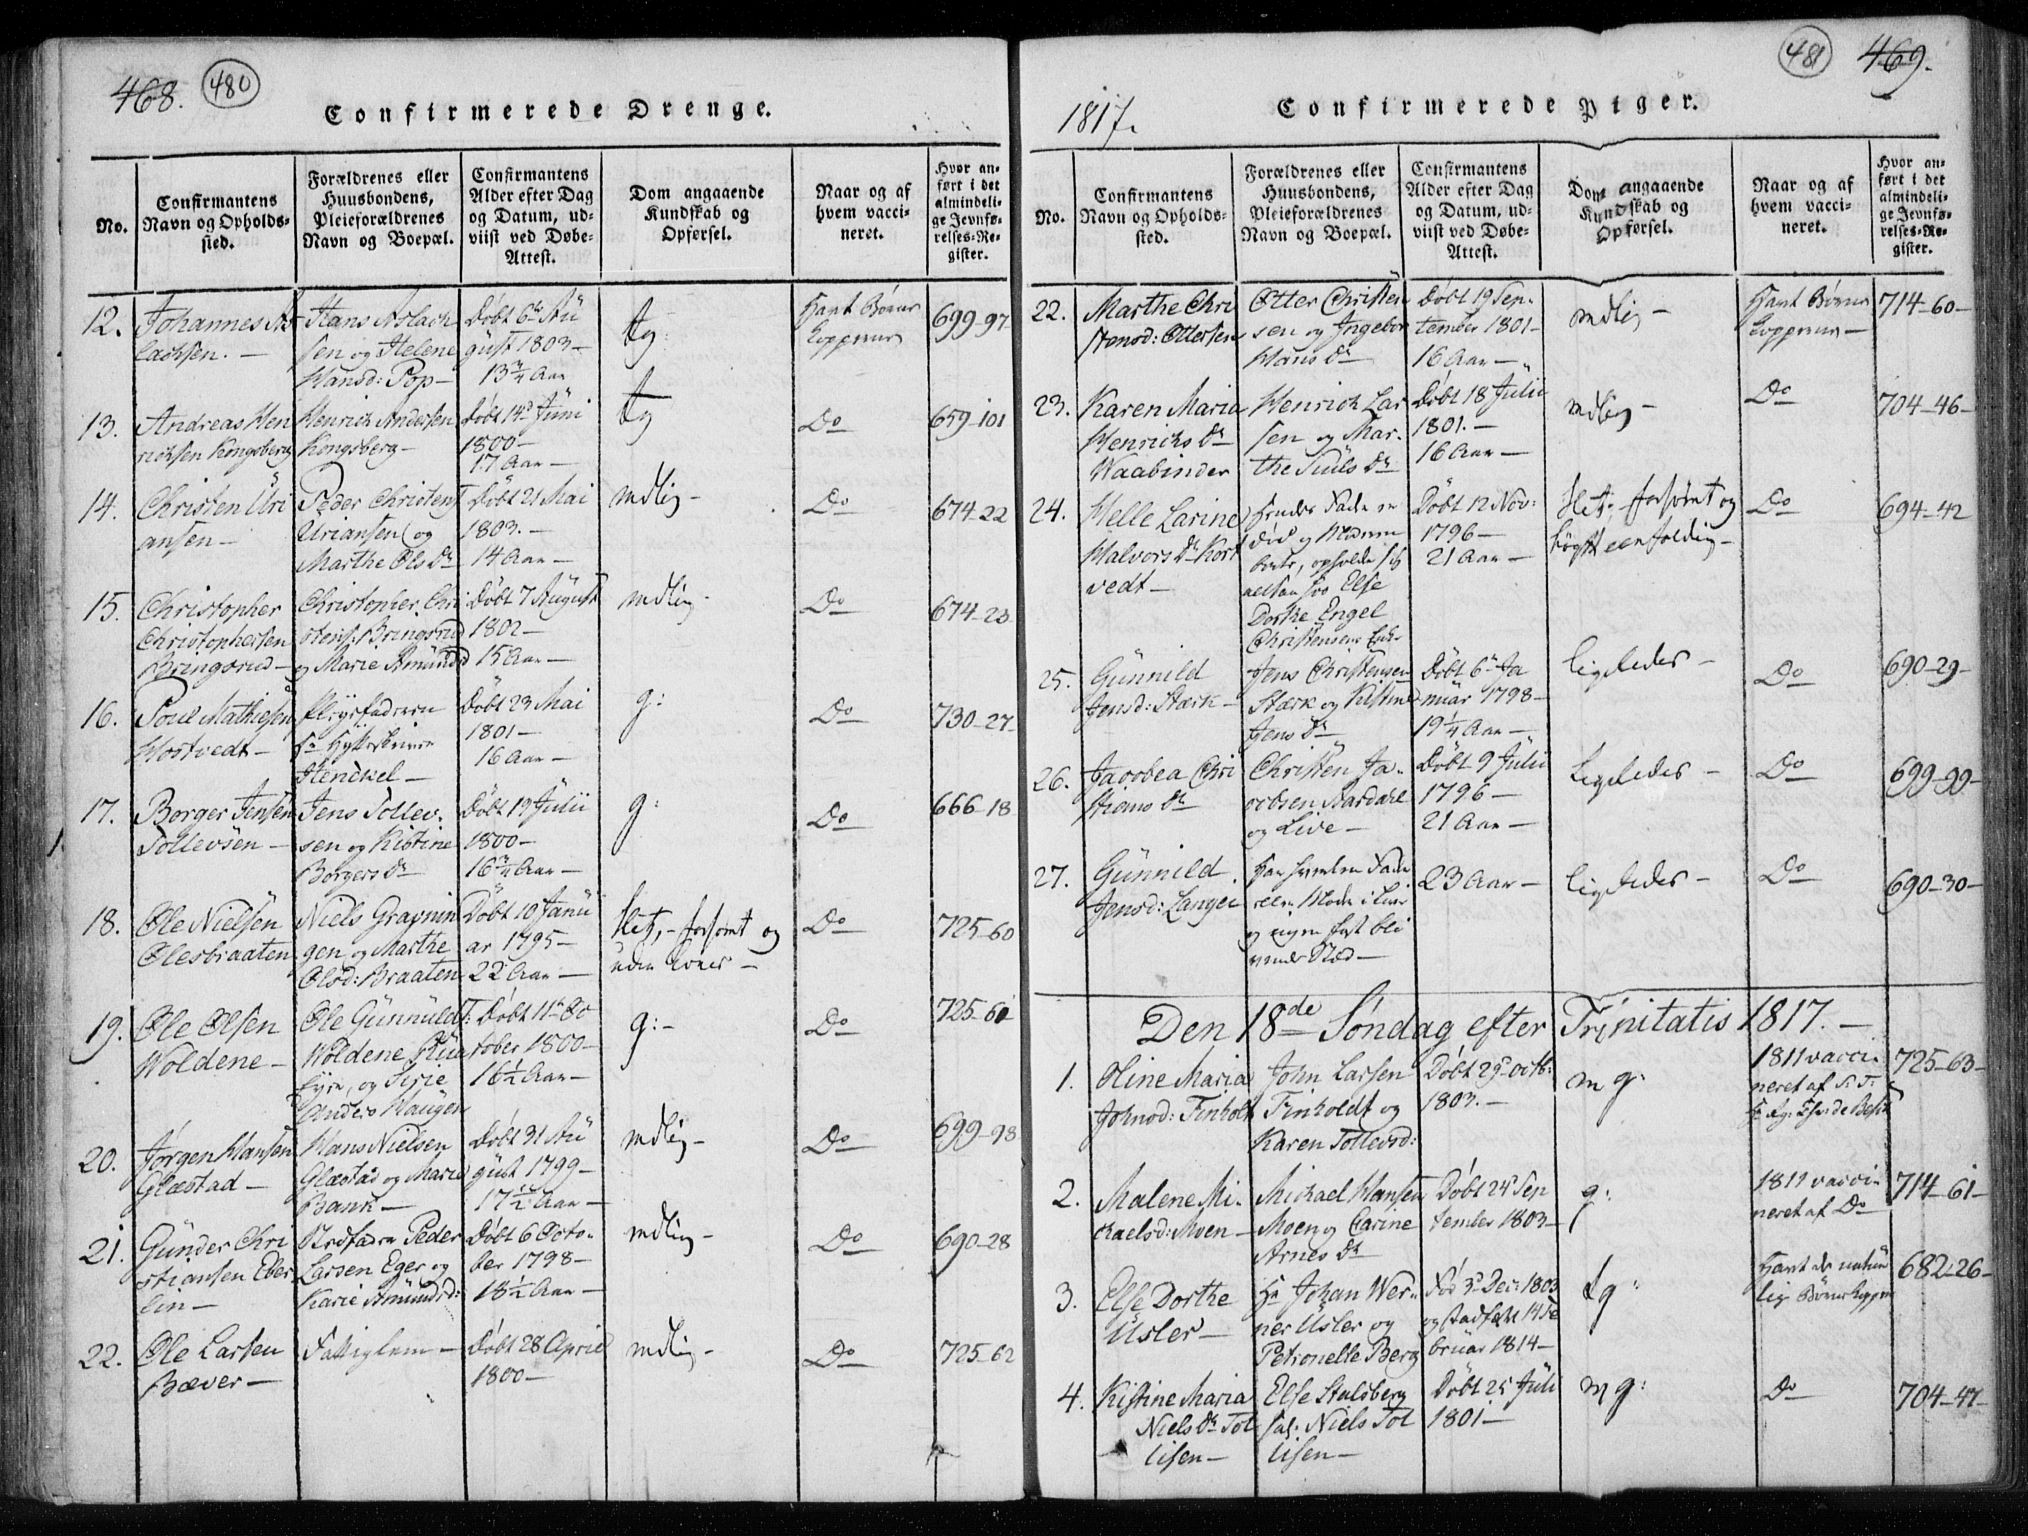 468. 480
Confirmerede Drenge.
No.
Confirmantens
Navn og Opholds-
sted.
Forældrenes eller
Huusbondens,
Pleieforældrenes
Navn og Boepæl.
Confirmantens
Alder efter Dag
og Datum, ud-
viist ved Døbe-
Attest.
Dom angaaende
Kundskab og
Opførsel.
Naar og af
hvem vacci-
neret.
Hvor an-
ført i det
almindeli-
ge Jevnfø-
relses-Re-
gister.
12.
Johannes As
lachsen. —
Hans Aslach
sen og Helene
Hansd: Pop—
Døbt 6te Au
gust 1803—
13 3/4 Aar
tg:
Havt Børne
Kopperne
699-97
13.
Andreas Hen
richsen Kongsberg
Henrich Andersen
Kongsberg—
Døbt 14de Juni
1800—
17 Aar—
tg
Do
659-101
14.
Christen Uri
ansen—
Peder Christens
Uriansen og
Marthe Ols Dr
Døbt 21 Mai
1803.—
14 Aar—
mdlig—
Do
674-22
15.
Christopher
Christophersen
Bringsrud—
Christopher Chri
stens: Bringsrud
og Marie Amunds
Døbt 7 August
1802—
15 Aar—
mdlig—
Do
674-23
16.
Poul Mathiesen
Hostvedt—
Pleyefaderen
Hr Hytteskriver
Henckel—
Døbt 23 Mai
1801—
16 Aar—
g:
Do
730-27
17.
Borger Jensen
Tollevsen—
Jens Tollev-
sen og Kistine
Borgers Dr
Døbt 19 Julii
1800—
16 3/4 Aar—
g:
Do
666-18
18.
Ole Nielsen
Olesbraaten
Niels Grapnin
gen og Marthe
Olsd: Braaten
Døbt 10 Janu
ar 1795—
22 Aar—
slet,- forsømt og
uden Evner—
Do
725-60
19.
Ole Olsen
Woldene—
Ole Gunnuld
Woldene
og Sirie
Anders Haugen
Døbt 11te Oc
tober 1800—
16 1/2 Aar—
g:—
Do
725-61
20.
Jørgen Hansen
Glæstad—
Hans Nielsen
Glæstad og Marie
Bank—
Døbt 31 Au
gust 1799—
17 1/2 Aar—
mdlig—
Do
699-98
21.
Gunder Chri
stiansen Eber
lin—
Stedfadren Peder
Larsen Eger og
Karie Amundsd:
Døbt 6 Octo-
ber 1798—
18 1/2 Aar—
mdlig—
Do
690-28
22.
Ole Larsen
Bæver—
Fattiglem—
Døbt 28 April
1800—
mdlig—
Do
725-62
481 469.
1817.
Confirmerede Piger.
No.
Confirmantens
Navn og Opholds-
sted.
Forældrenes eller
Huusbondens,
Pleieforældrenes
Navn og Boepæl.
Confirmantens
Alder efter Dag
og Datum, ud-
viist ved Døbe-
Attest.
Dom angaaende
Kundskab og
Opførsel.
Naar og af
hvem vacci-
neret.
Hvor an-
ført i det
almindeli-
ge Jevnfø-
relses-Re-
gister.
22.
Marthe Chri
stensd: Ottersen
Otter Christen
sen og Ingebor
Hans Dr
Døbt 19 Sep-
tember 1801—
16 Aar—
mdlig—
Havt Børne
Kopperne—
714-60—
23.
Karen Maria
Henrichs Dr
Waabinder
Henrich Lar
sen og Mar-
the Siuls Dr
Døbt 18 Julii
1801.—
16 Aar—
mdlig—
Do
704-46—
24.
Helle Larine
Halvors Dr Kort
vedt—
Hendes Fader er
død og Moderen
borte, opholder sig
hos Else
Dorthe Engel
Christensens Enke
Døbt 12 Nov:
1796—
21 Aar—
slet, forsømt og
høyst eenfoldig—
Do
694-42
25.
Gunnild
Jensd: Stærk—
Jens Christensen
Stærk og Kistine
Jens Dr
Døbt 6te Ja
nuar 1798—
19 1/4 Aar—
ligeledes—
Do
690-29—
26.
Jacobea Chri
stens Dr
Christen Ja-
cobsen Aardahl
og Live—
Døbt 9 Julii
1796—
21 Aar—
Ligeledes—
Do
699-99—
27.
Gunnild
Jensd: Lange
Har hverken Fader
eller Moder i Live
og ingen fast bli
vende Sted—
23 Aar—
ligeledes—
Do
690-30—
Den 18de Søndag efter Trinitatis 1817.—
1.
Oline Maria
Johnsd: Finholt
John Larsen
Finholdt og
Karen Tollevsd:
Døbt 29de octb:
1803.—
m g:
1811 vacci-
neret af S. T.
725-63—
2.
Malene Mi-
kaelsd: Moen—
Mickael Hansen
Moen og Carine
Arnes Dr
Døbt 24de Sep
tember 1803—
g:
1811 vacci
neret af Do
714-61—
3.
Else Dorthe
Usler—
Hr Johan Wer-
ner Usler og
Petronelle Berg
Fød 3de Dec: 1803
og stadfæstet 14 Fe
bruar 1814—
tg:
Havt de natur
lige Børnekopper
682-26—
4.
Kistine Maria
Niels Dr Tol
lisen—
Else Stulsberg
sal: Niels Tol
lisen—
Døbt 25 Juli
1801—
m g:
Do
704-47—